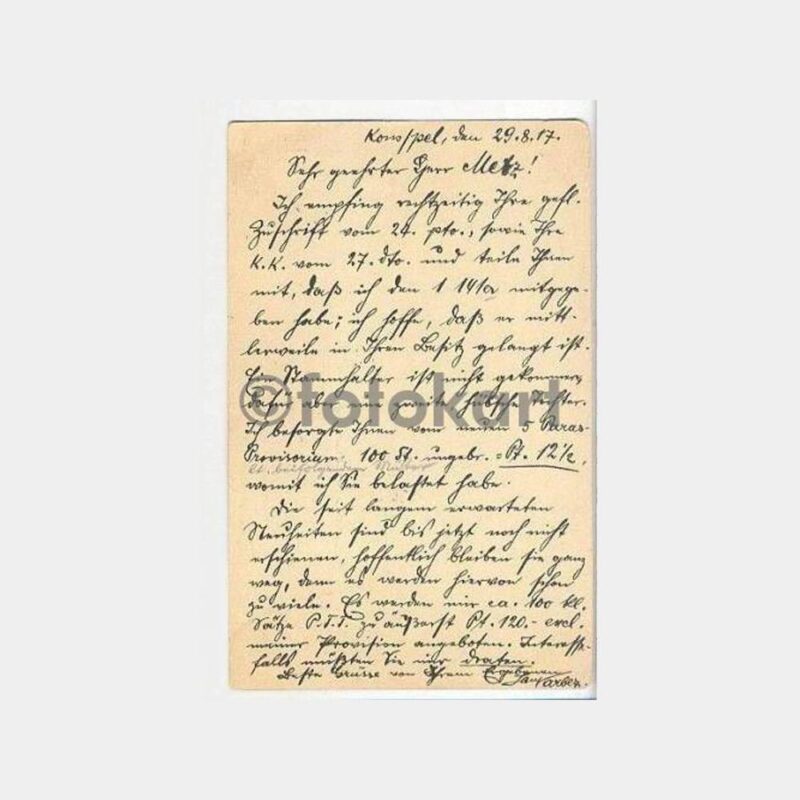 Konspel, den 29.8.17.
Sehr geehrter Herr Metz!
Ich empfing rechtzeitig Ihre gefl.
Zuschrift vom 24. pto., sowie Ihre
K.K. vom 27. dto. und teile Ihnen
mit, daß ich den 1 14/a mitgege-
ben habe; ich hoffe, daß er mitt-
lerweile in Ihren Besitz gelangt ist.
Ein Stammhalter ist nicht gekommen,
dafür aber eine zweite hübsche Tochter.
©fotokart
Ich besorgte Ihnen vom neuen 5 Paras-
Provisorium: 100 St. ungebr. = Pt. 12½,
lt. beifolgendem Muster
womit ich Sie belastet habe.
Die seit langem erwarteten
Neuheiten sind bis jetzt noch nicht
erschienen, hoffentlich bleiben sie ganz
weg, denn es werden hiervon schon
zu viele. Es werden mir ca. 100 kl.
Sätze P.T.T. zu äußerst Pt. 120.- excl.
meiner Provision angeboten. Interesse-
falls müßten Sie mir draten.
Beste Grüsse von Ihrem Ergebenen